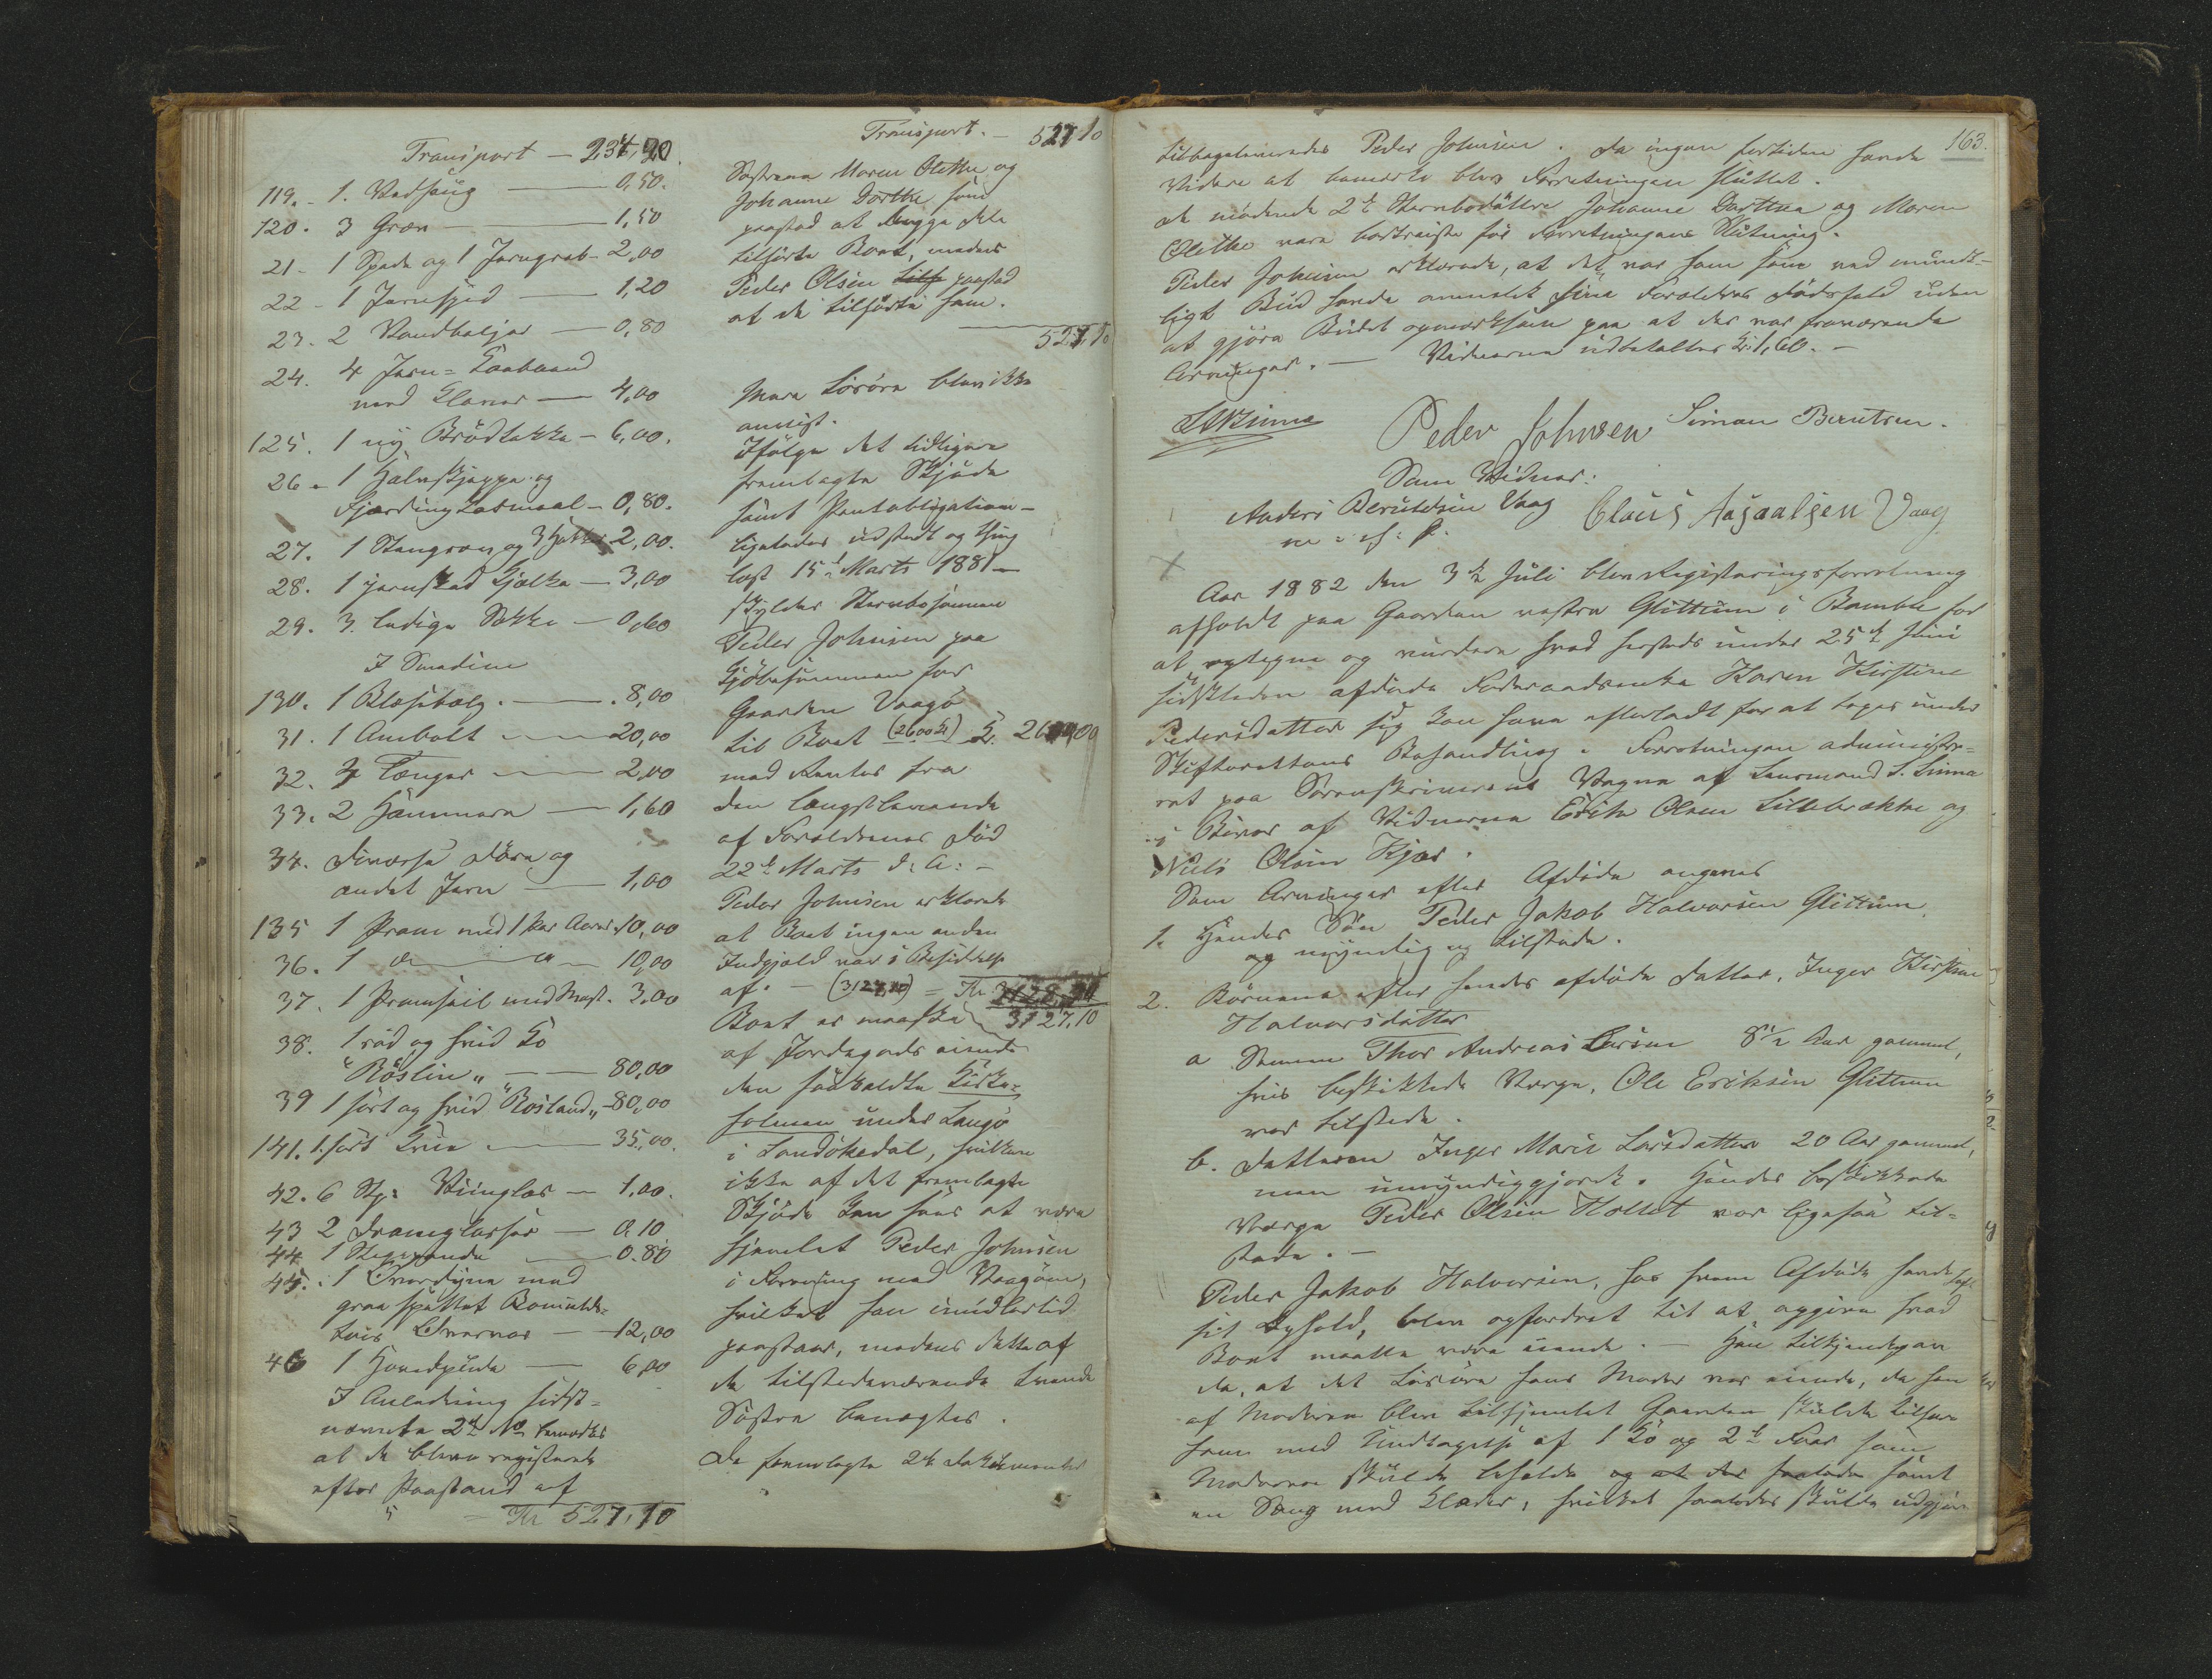 Transport — 234,20.
119. - 1. Vedsaug — 0,50.
120. 3 Græv — 1,50
21 - 1 Spade og 1 Jerngreb - 2,00
22 - 1 Jernspid — 1,20
23. 2 Vandbaljer — 0,80
24. 4 Jern-Koebaand
med Klaver — 4,00
125. 1 ny Brödtakke — 6,00.
26 - 1 Halvskjæppe og
Fjerding Kormaal — 0,80.
27. 1 Stangvægt og 2,00.
28. 1 jernskod Kjælke — 3,00
29. 3 ledige Sække — 0,60
I Smedien
130. 1 Blæsebælg. — 8,00
31. 1 Ambolt — 20,00
32. 4 Tænger — 2,00
33. 2 Hammere — 1,60
34. Diverse Döre og
andet Jern — 1,00
135 1 Pram med 1 par Aarer 10,00
36. 1 do — a — 10,00
37. 1 Pramseil med Mast. 3,00
38. 1 röd og hvid Ko
"Röslin" — 80,00
39 1 sort og hvid "Rosland" — 80,00
141. 1 sort Kvie — 35,00.
42. 6 Stk: Vinglas — 1,00.
43 2 Dramglasser — 0.10
44 1 Stegepande — 0.80
45. 1 Overdyne med
graa spættet Bomulds-
töis Overvar — 12,00
46 1 Hovedpude — 6,00
I Anledning sidst-
nævnte 2de No bemærkes
at de bleve registrerede
efter Paastand af
= Kr 527,10
Transport. — 527 10
Söstrene Maren Olethe og
Johanne Dorthe som
paastod at begge dele
tilhörte Boet, medens
Peder Olsen paastod
at de tilhörte ham.
527,10
Mere Lösöre blev ikke
anvist.
Ifölge det tidligere
fremlagte Skjöde
samt Pantobligation -
ligeledes udstedt og thing
læst 15de Marts 1881 —
skylder Stervbosönnen
Peder Johnsen paa
Kjöbesummen for
Gaarden Vaagö
til Boet (2600 Kr) Kr. 2600,00
med Renter fra
den længstlevende
af Forældrenes Död
22de Marts d: A: -
Peder Johnsen erklærede
at Boet ingen anden
Indgjæld var i Besiddelse
af. — (3127,10) = Kr
Boet er maaske 3127,10
af Jordegods eiende
den saakaldte
holmen under Langö
i Sandökedal, hvilken
ikke af det fremlagte
Skjöde kan sees at være
hjemlet Peder Johnsen
i Forening med Vaagöen,
hvilket han imidlertid
paastaar, medens dette af
de tilstedeværende tvende
Söstre benægtes.
De fremlagte 2de Dokumenter
163.
tilbageleveredes Peder Johnsen. Da ingen forresten havde
Videre at bemærke blev Forretningen sluttet.
De mödende 2de Stervbodöttre Johanne Dorthea og Maren
Olethe vare bortreiste för Forretningens Slutning.
Peder Johnsen erklærede, at det var ham som ved mundt-
ligt Bud havde anmeldt sine Forældres Dödsfald uden
at gjöre Budet opmærksom paa at der var fraværende
Arvinger. — Vidnerne udbetaltes Kr. 1,60. —
Peder Johnsen Simon Berntsen.
Som Vidner:
Anders Berntsen Vaag Claus Aasaalsen Vaag
m. f. P.
Aar 1882 den 3de Juli blev Registreringsforretning
afholdt paa Gaarden vestre Glittum i Bamble for
at optegne og vurdere hvad hersteds under 25de Juni
sidstleden afdöde Föderaadsenke Karen Kirstine
Pedersdatter sig kan have efterladt for at tages under
Skifterettens Behandling. Forretningen administre-
ret paa Sorenskriverens Vegne af Lensmand S. Linna
i Bivær af Vidnerne Erik Olsen Lillebrække og
Niels Olsen Kjær.
Som Arvinger efter Afdöde angaves
1. Hendes Sön Peder Jakob Halvorsen Glittum,
og myndig og tilstede.
2. Börnene efter hendes afdöde Datter, Inger Kirstine
Halvorsdatter
a Sönnen Thor Andreas Larsen 8 1/2 Aar gammel,
hvis beskikkede Værge, Ole Eriksen Glittum
var tilstede.
b. Datteren Inger Marie Larsdatter 20 Aar gammel,
men umyndiggjort. Hendes beskikkede
Værge Peder Olsen Holtet var ligesaa til-
stede. —
Peder Jakob Halvorsen, hos hvem Afdöde havde havt
sit Ophold, blev opfordret til at opgive hvad
Boet maatte være eiende. — Han tilkjendegav
da, at det Lösöre hans Moder var eiende, da han
af Moderen blev tilhjemlet Gaarden skulde tilhöre
ham med Undtagelse af 1 Ko og 2de Faar som
Moderen skulde beholde og at der samt
en Seng med Klæder, hvilket saaledes skulde udgjöre